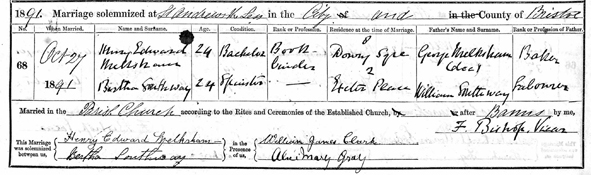 1891. Marriage solemnized at St Andrew the Less in the City of and in the County of Bristol
No. When Married. Name and Surname. Age. Condition. Rank or Profession. Residence at the time of Marriage. Father's Name and Surname. Rank or Profession of Father.
68 Oct 27 1891
Henry Edward Melksham 24 Bachelor Book-binder 8 Dowry Sqre George Melksham (decd) Baker
Bertha Smithway 24 Spinster 2 Exeter Place William Smithway Labourer
Married in the Parish Church according to the Rites and Ceremonies of the Established Church, by after Banns by me,
F. Bishop, Vicar
This Marriage was solemnized between us, Henry Edward Melksham
Bertha
in the Presence of us, William James Clark
Alice Mary Gray